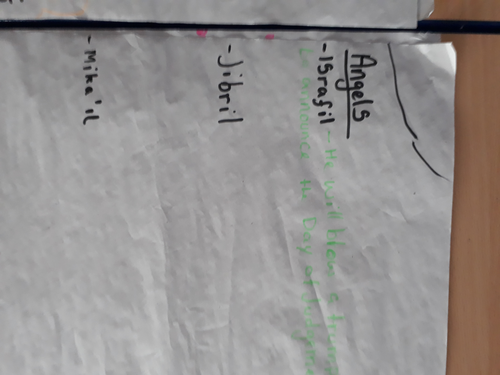 Angels
- Israfil - He will blow a trumpet
to announce the Day of Judgement
- Jibril
- Mika'il